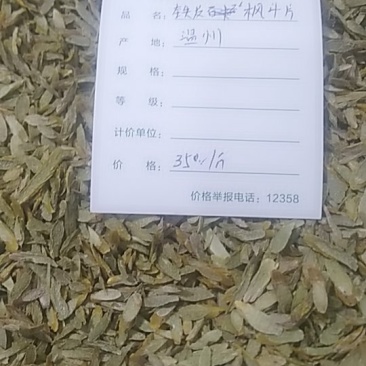 品 名：铁皮石斛枫斗片
产 地：温州
规 格：
等 级：
计价单位：
价 格：350元/斤
价格举报电话：12358